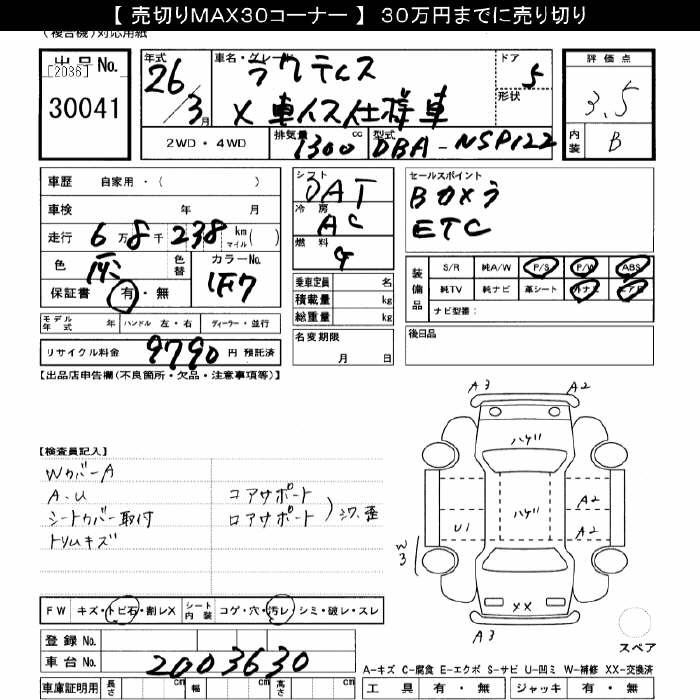 【 売切りMAX30コーナー 】 30万円までに売り切り
(複合機)対応用紙
出品No.
[2036]
30041
年式 26/3月
車名・グレード ラクティス
X 車イス仕様車
ドア 5
形状
評価点
3.5
内装 B
2WD・4WD
排気量 1300cc
型式 DBA-NSP122
車歴 自家用・( )
車検 年 月
走行 6万8千238 km マイル( )
色
色替
カラーNo. 1F7
保証書 有・無
モデル年式 年 ハンドル 左・右 ディーラー・並行
リサイクル料金 9790円 預託済
シフト
AT
冷房 AC
燃料 G
乗車定員 名
積載量 kg
総重量 kg
名変期限
月 日
セールスポイント
Bカメラ
ETC
装備品
S/R 純A/W P/S P/W ABS
純TV 純ナビ 革シート 外ナビ エアB
ナビ型番:
後日品
【出品店申告欄(不良箇所・欠品・注意事項等)】
【検査員記入】
Wカバー A
A・U
シートカバー取付
トリムキズ
コアサポート
ロアサポート
シワ、歪
A3
A2
ハゲ
ハゲ
A2
A2
U1
W3
XX
A3
スペア
FW キズ・トビ石・割レX
シート内装 コゲ・穴・汚レ・シミ・破レ・スレ
登録No.
車台No. 2003630
車庫証明用 長さ cm 幅 cm 高さ cm
A-キズ C-腐食 E-エクボ S-サビ U-凹ミ W-補修 XX-交換済
工具 有・無 ジャッキ 有・無